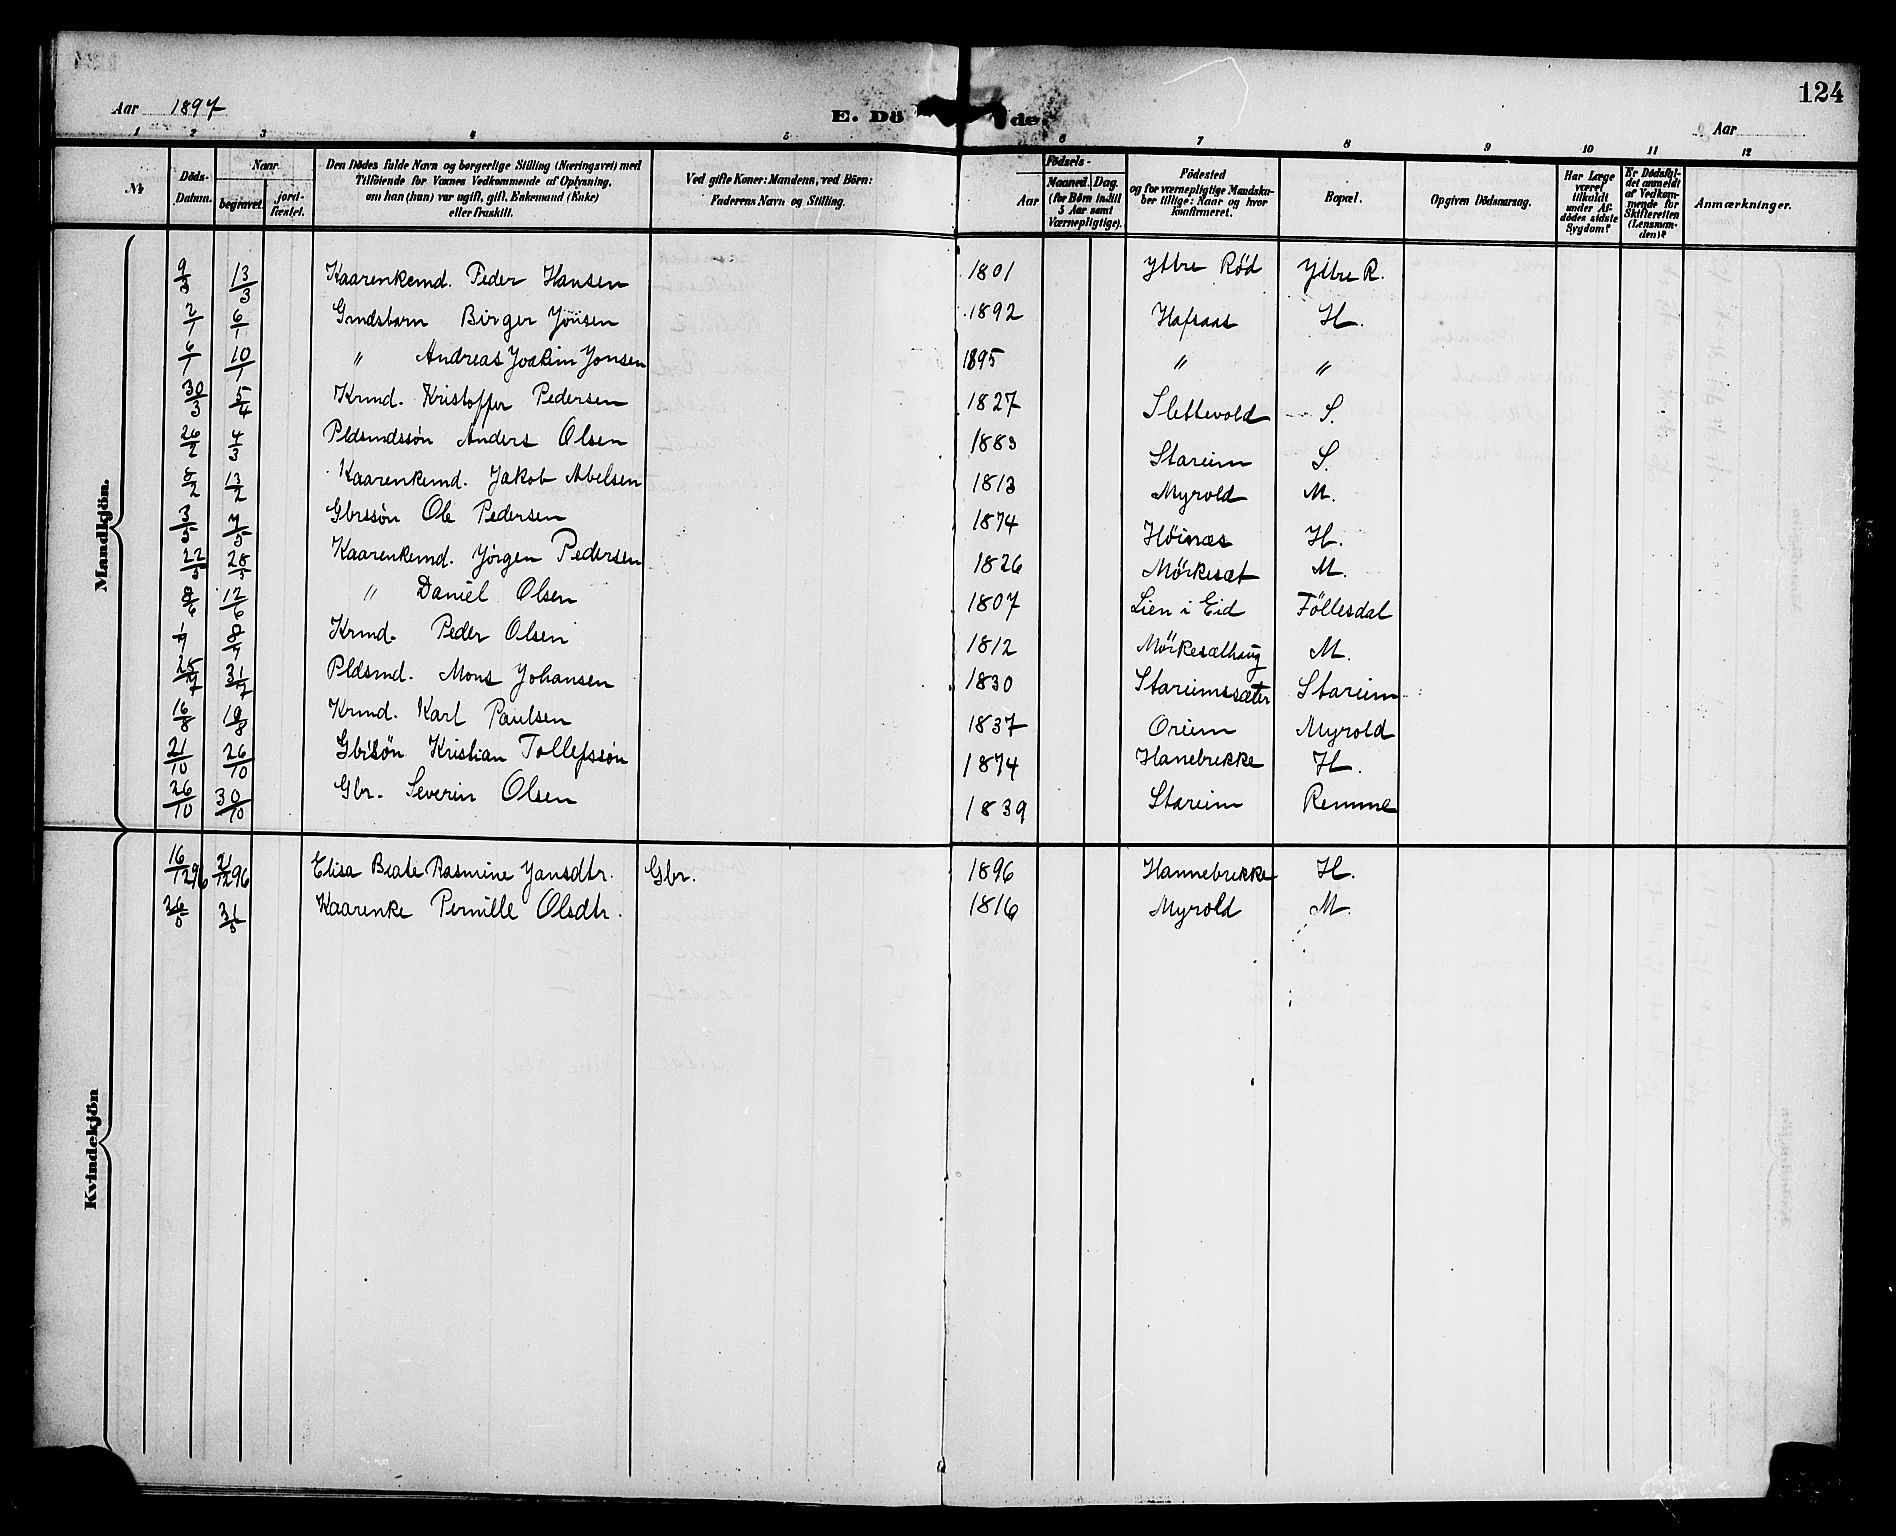 124
Aar 1897
E. Dö de.
Aar
1 2 3 4 5 6 7 8 9 10 11 12
№
Döds-Datum.
Naar
begravet.
jord-fæstet.
Den Dödes fulde Navn og borgerlige Stilling (Næringsvei) med
Tilföiende for Voxnes Vedkommende af Oplysning,
om han (hun) var ugift, gift, Enkemand (Enke)
eller fraskilt.
Ved gifte Koner: Mandens, ved Börn:
Faderens Navn og Stilling.
Födsels-
Aar
Maaned. Dag.
(for Börn indtil
5 Aar samt
Værnepligtige).
Födested
og for værnepligtige Mandska-
ber tillige: Naar og hvor
konfirmeret.
Bopæl.
Opgiven Dödsaarsag.
Har Læge
været
tilkaldt
under Af-
dödes sidste
Sygdom?
Er Dödsfal-
det anmeldt
af Vedkom-
mende for
Skifteretten
(Lensman-
den)?
Anmærkninger.
Mandkjön.
9/3 13/3 Kaarenkemd. Peder Hansen 1801 Yttre Röd Yttre R.
2/1 6/1 Gmdsbarn Birger Jonsen 1892 Hafsaas H.
6/1 10/1 " Andreas Joakim Jonsen 1895 " "
30/3 5/4 Krmd. Kristoffer Pedersen 1827 Slettevold S.
26/2 4/3 Pldsmdssön Anders Olsen 1883 Stareim S.
13/2 Kaarenkemd. Jakob Abelsen 1813 Myrold M.
3/5 7/5 Gbrssön Ole Pedersen 1874 Höinæs H.
22/5 28/5 Kaarenkemd. Jörgen Pedersen 1826 Mörkesæt M.
8/6 12/6 " Daniel Olsen 1807 Lien i Eid Föllesdal
1/7 8/7 Krmd. Peder Olsen 1812 Mörkesælhaug M.
25/7 31/7 Pldsmd. Mons Johansen 1830 Stareimssæter Stareim
16/8 19/8 Krmd. Karl Paulsen 1837 Oreim Myrold
21/10 26/10 Gbrsön Kristian Tollefssön 1874 Hanebrekke H.
26/10 30/10 Gbr. Severin Olsen 1839 Stareim Remme
Kvindekjön
16/12 96 21/12 96 Elisa Beate Rasmine Jansdtr. Gbr. 1896 Hannebrekke H.
26/5 31/5 Kaarenke Pernille Olsdtr. 1816 Myrold M.